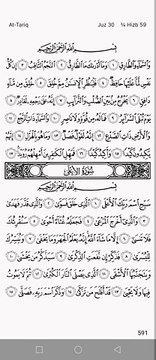 At-Tariq Juz 30 ¼ Hizb 59
بِسْمِ اللَّهِ الرَّحْمَٰنِ الرَّحِيمِ
وَالسَّمَاءِ وَالطَّارِقِ ١ وَمَا أَدْرَاكَ مَا الطَّارِقُ ٢ النَّجْمُ الثَّاقِبُ ٣ إِن كُلُّ
نَفْسٍ لَّمَّا عَلَيْهَا حَافِظٌ ٤ فَلْيَنظُرِ الْإِنسَانُ مِمَّ خُلِقَ ٥ خُلِقَ مِن مَّاءٍ
دَافِقٍ ٦ يَخْرُجُ مِن بَيْنِ الصُّلْبِ وَالتَّرَائِبِ ٧ إِنَّهُ عَلَىٰ رَجْعِهِ لَقَادِرٌ ٨
يَوْمَ تُبْلَى السَّرَائِرُ ٩ فَمَا لَهُ مِن قُوَّةٍ وَلَا نَاصِرٍ ١٠ وَالسَّمَاءِ ذَاتِ الرَّجْعِ ١١
وَالْأَرْضِ ذَاتِ الصَّدْعِ ١٢ إِنَّهُ لَقَوْلٌ فَصْلٌ ١٣ وَمَا هُوَ بِالْهَزْلِ ١٤ إِنَّهُمْ
يَكِيدُونَ كَيْدًا ١٥ وَأَكِيدُ كَيْدًا ١٦ فَمَهِّلِ الْكَافِرِينَ أَمْهِلْهُمْ رُوَيْدًا ١٧
سُورَةُ الأَعْلَى
بِسْمِ اللَّهِ الرَّحْمَٰنِ الرَّحِيمِ
سَبِّحِ اسْمَ رَبِّكَ الْأَعْلَى ١ الَّذِي خَلَقَ فَسَوَّىٰ ٢ وَالَّذِي قَدَّرَ فَهَدَىٰ
٣ وَالَّذِي أَخْرَجَ الْمَرْعَىٰ ٤ فَجَعَلَهُ غُثَاءً أَحْوَىٰ ٥ سَنُقْرِئُكَ
فَلَا تَنسَىٰ ٦ إِلَّا مَا شَاءَ اللَّهُ إِنَّهُ يَعْلَمُ الْجَهْرَ وَمَا يَخْفَىٰ ٧ وَنُيَسِّرُكَ
لِلْيُسْرَىٰ ٨ فَذَكِّرْ إِن نَّفَعَتِ الذِّكْرَىٰ ٩ سَيَذَّكَّرُ مَن يَخْشَىٰ ١٠
وَيَتَجَنَّبُهَا الْأَشْقَى ١١ الَّذِي يَصْلَى النَّارَ الْكُبْرَىٰ ١٢ ثُمَّ لَا يَمُوتُ
فِيهَا وَلَا يَحْيَىٰ ١٣ قَدْ أَفْلَحَ مَن تَزَكَّىٰ ١٤ وَذَكَرَ اسْمَ رَبِّهِ فَصَلَّىٰ ١٥
591